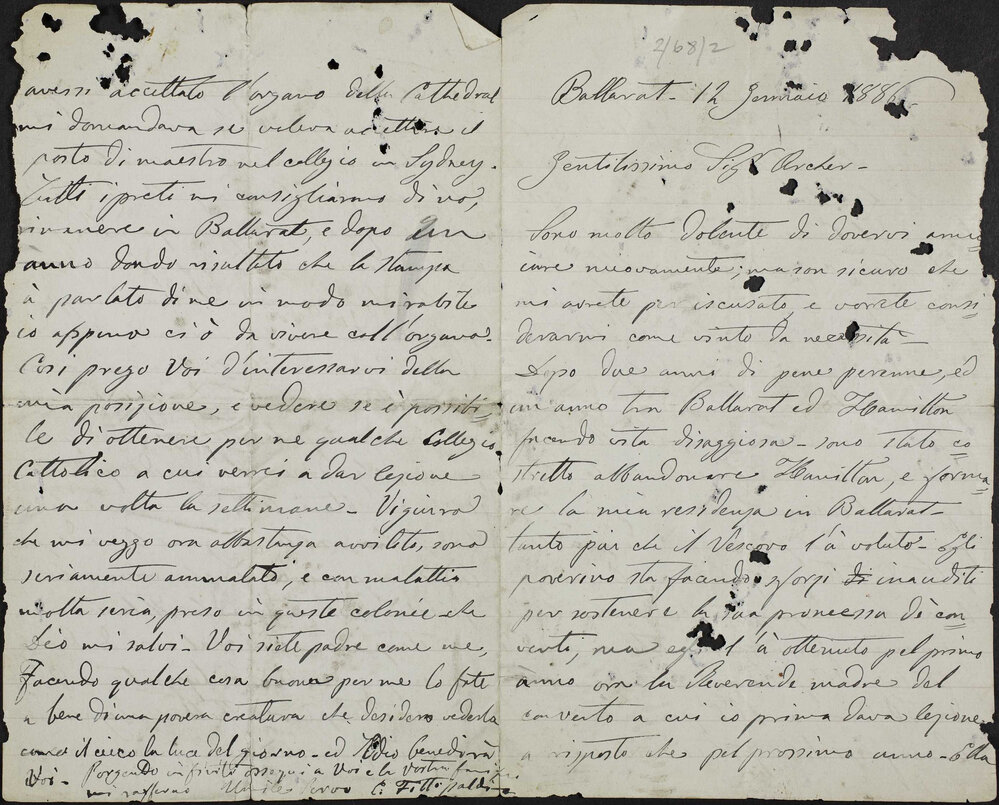 2/68/2
Ballarat - 12 Gennaio 1886
Gentilissimo Sigr Archer -
Sono molto dolente di dovervi annu=
ciare nuovamente; ma son sicuro che
mi avrete per iscusato, e vorrete consi=
derarmi come vinto da necessità -
Dopo due anni di pene perenne, ed
un anno tra Ballarat ed Hamilton
facendo vita disaggiosa - sono stato co=
stretto abbandonare Hamilton, e forma=
re la mia residenza in Ballarat -
tanto più che il Vescovo l'à voluto - Egli
poverino sta facendo sforzi di inauditi
per sostenere la sua promessa di con=
venti, ma egli l'à ottenuto pel primo
anno ora la Reverende madre del
convento a cui io prima dava lezione
a risposto che pel prossimo anno - Ella
avessi accettato l'organo della Cathedral
mi domandava se voleva accettare il
posto di maestro nel collegio in Sydney -
Tutti i preti mi consigliarono di no,
rimanere in Ballarat, e dopo un
anno dondo risultato che la stampa
à parlato di me in modo mirabile
io appena ci ò da vivere coll'organo.
Così prego Voi d'interessarvi della
mia posizione, e vedere se è possibi=
le di ottenere per me qualche Collegio
Cattolico a cui verrei a dar lezione
una volta la settimane - Vi giuro
che mi veggo ora abbastanza avvilito, sono
seriamente ammalato, e con malattia
molta seria, preso in queste colonie - che
Dio mi salvi - Voi siete padre come me,
Facendo qualche cosa buona per me lo fate
a bene di una povera creatura che desidero vederla
come il cieco la luce del giorno - ed Iddio benedirà
Voi - Porgendo infiniti ossequi a Voi e la vostra
mi raffermo Umile Servo C. Fittipaldi -